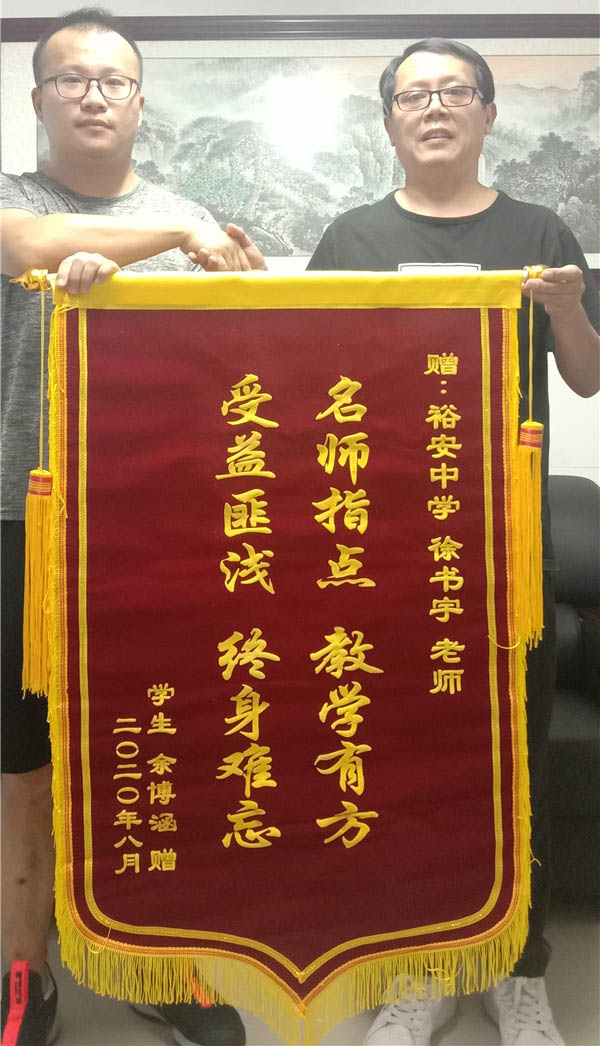 赠：裕安中学 徐书宇 老师
名师指点 教学有方
受益匪浅 终身难忘
学生 余博涵 赠
二〇二〇年八月